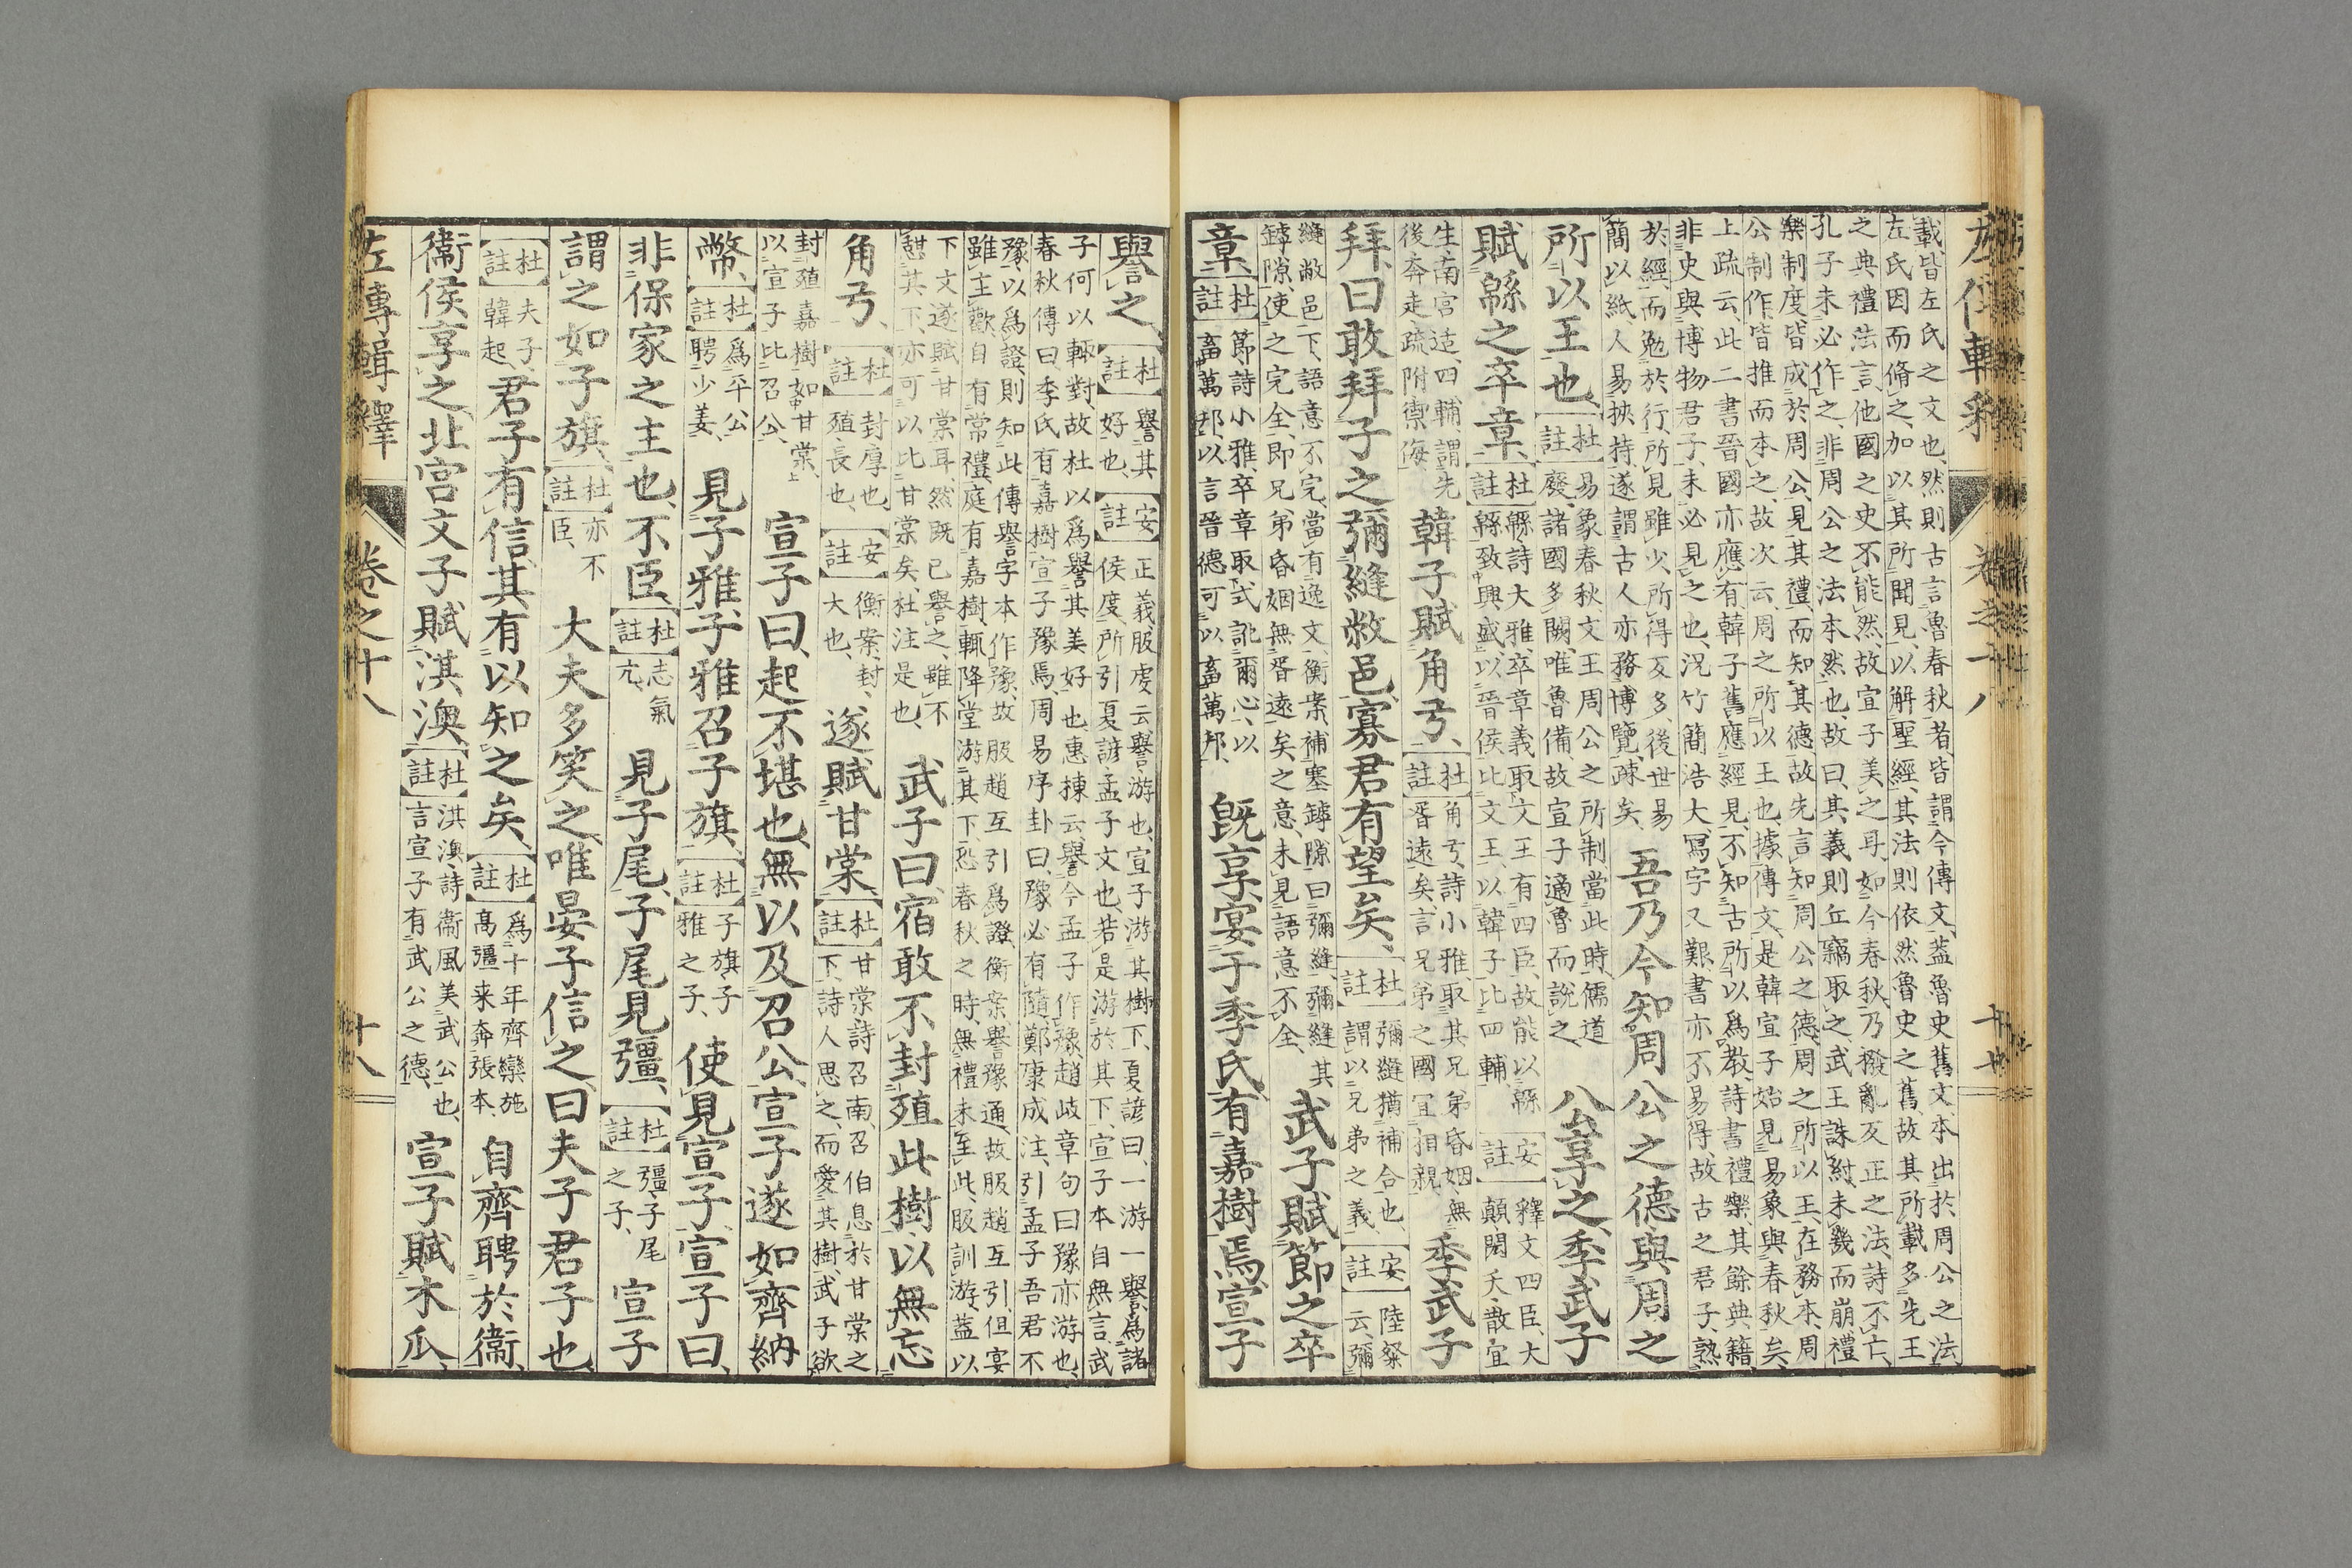 載皆左氏之文也然則古言魯春秋者皆謂今傳文蓋魯史舊文本出於周公之法
左氏因而脩之加以其所聞見以解聖經其法則依然魯史之舊故其所載多先王
之典禮法言他國之史不能然故宣子美之耳如今春秋乃撥亂反正之法詩不亡
孔子未必作之非周公之法本然也故曰其義則丘竊取之武王誅紂未幾而崩禮
樂制度皆成於周公見其禮而知其德故先言知周公之德周之所以王在務本周
公制作皆推而本之故次云周之所以王也據傳文是韓宣子始見易象與春秋矣
上疏云此二書晉國亦應有韓子舊應經見不知古所以爲教詩書禮樂其餘典籍
非史與博物君子未必見之也況竹簡浩大寫字又艱書亦不易得故古之君子熟
於經而勉於行所見雖少所得反多後世易
簡以紙人易挾持遂謂古人亦務博覽疎矣
吾乃今知周公之德與周之
所以王也
杜註
易象春秋文王周公之所制當此時儒道
廢諸國多闕唯魯備故宣子適魯而說之
公享之季武子
賦緜之卒章
杜註
緜詩大雅卒章義取文王有四臣故能以緜
緜致興盛以晉侯比文王以韓子比四輔
安註
釋文四臣大
顛閎夭散宜
生南宮适四輔謂先
後奔走疏附禦侮
韓子賦角弓
杜註
角弓詩小雅取其兄弟昏姻無
胥遠矣言兄弟之國宜相親
季武子
拜曰敢拜子之彌縫敝邑寡君有望矣
杜註
彌縫猶補合也
謂以兄弟之義
安註
陸粲
云彌
縫敝邑下語意不完當有逸文衡案補塞罅隙曰彌縫彌縫其
罅隙使之完全即兄弟昏姻無胥遠矣之意未見語意不全
武子賦節之卒
章
杜註
節詩小雅卒章取式訛爾心以
畜萬邦以言晉德可以畜萬邦
既享宴于季氏有嘉樹焉宣子
譽之
杜註
譽其
好也
安註
正義服虔云譽游也宣子游其樹下夏諺曰一游一譽爲諸
侯度所引夏諺孟子文也若是游於其下宣子本自無言武
子何以輒對故杜以爲譽其美好也惠棟云譽今孟子作豫趙岐章句曰豫亦游也
春秋傳曰季氏有嘉樹宣子豫焉周易序卦曰豫必有隨鄭康成注引孟子吾君不
豫以爲證則知此傳譽字本作豫故服趙互引爲證衡案譽豫通故服趙互引但宴
雖主歡自有常禮庭有嘉樹輒降堂游其下恐春秋之時無禮未至此服訓游蓋以
下文遂賦甘棠耳然既已譽之雖不
甚其下亦可以比甘棠矣杜注是也
武子曰宿敢不封殖此樹以無忘
角弓
杜註
封厚也
殖長也
安註
衡案封
大也
遂賦甘棠
杜註
甘棠詩召南召伯息於甘棠之
下詩人思之而愛其樹武子欲
封殖嘉樹如甘棠
以宣子比召公
宣子曰起不堪也無以及召公宣子遂如齊納
幣
杜註
爲平公
聘少姜
見子雅子雅召子旗
杜註
子旗子
雅之子
使見宣子宣子曰
非保家之主也不臣
杜註
志氣
亢
見子尾子尾見彊
杜註
彊子尾
之子
宣子
謂之如子旗
杜註
亦不
臣
大夫多笑之唯晏子信之曰夫子君子也
杜註
夫子
韓起
君子有信其有以知之矣
杜註
爲十年齊欒施
高彊來奔張本
自齊聘於衞
衞侯享之北宮文子賦淇澳
杜註
淇澳詩衞風美武公也
言宣子有武公之德
宣子賦木瓜
左傳輯釋
卷之十八
十八